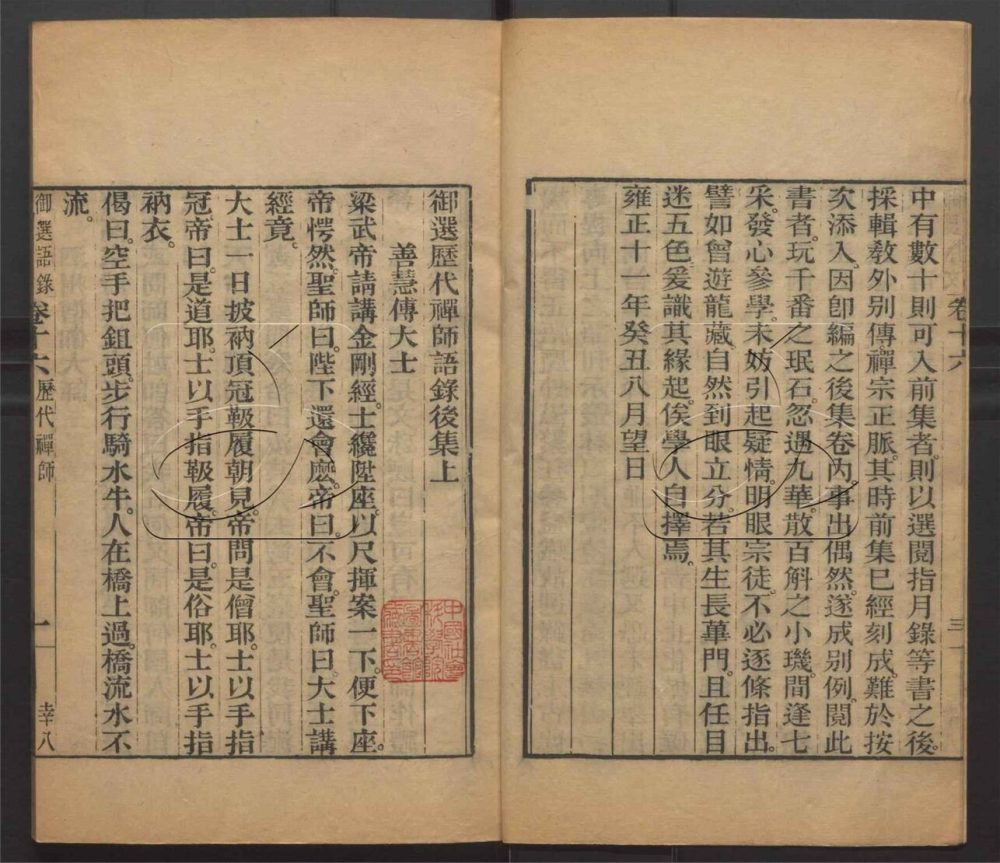 中有數十則可入前集者。則以選閱指月錄等書之後。
採輯教外別傳禪宗正脈。其時前集已經刻成。難於按
次添入。因卽編之後集卷內。事出偶然。遂成別例。閱此
書者。玩千番之珉石。忽遇九華。散百斛之小璣。間逢七
采。發心參學。未妨引起疑情。明眼宗徒。不必逐條指出。
譬如曾遊龍藏。自然到眼立分。若其生長蓽門。且任目
迷五色。爰識其緣起。俟學人自擇焉。
雍正十一年癸丑八月望日
卷十六
三
御選歷代禪師語錄後集上
善慧傅大士
梁武帝請講金剛經。士纔陞座。以尺揮案一下。便下座。
帝愕然。聖師曰。陛下還會麽。帝曰。不會。聖師曰。大士講
經竟。
大士一日披衲頂冠靸履朝見。帝問是僧耶。士以手指
冠。帝曰。是道耶。士以手指靸履。帝曰。是俗耶。士以手指
衲衣。
偈曰。空手把鉏頭。步行騎水牛。人在橋上過。橋流水不
流。
御選語錄 卷十六 歷代禪師 一 幸八